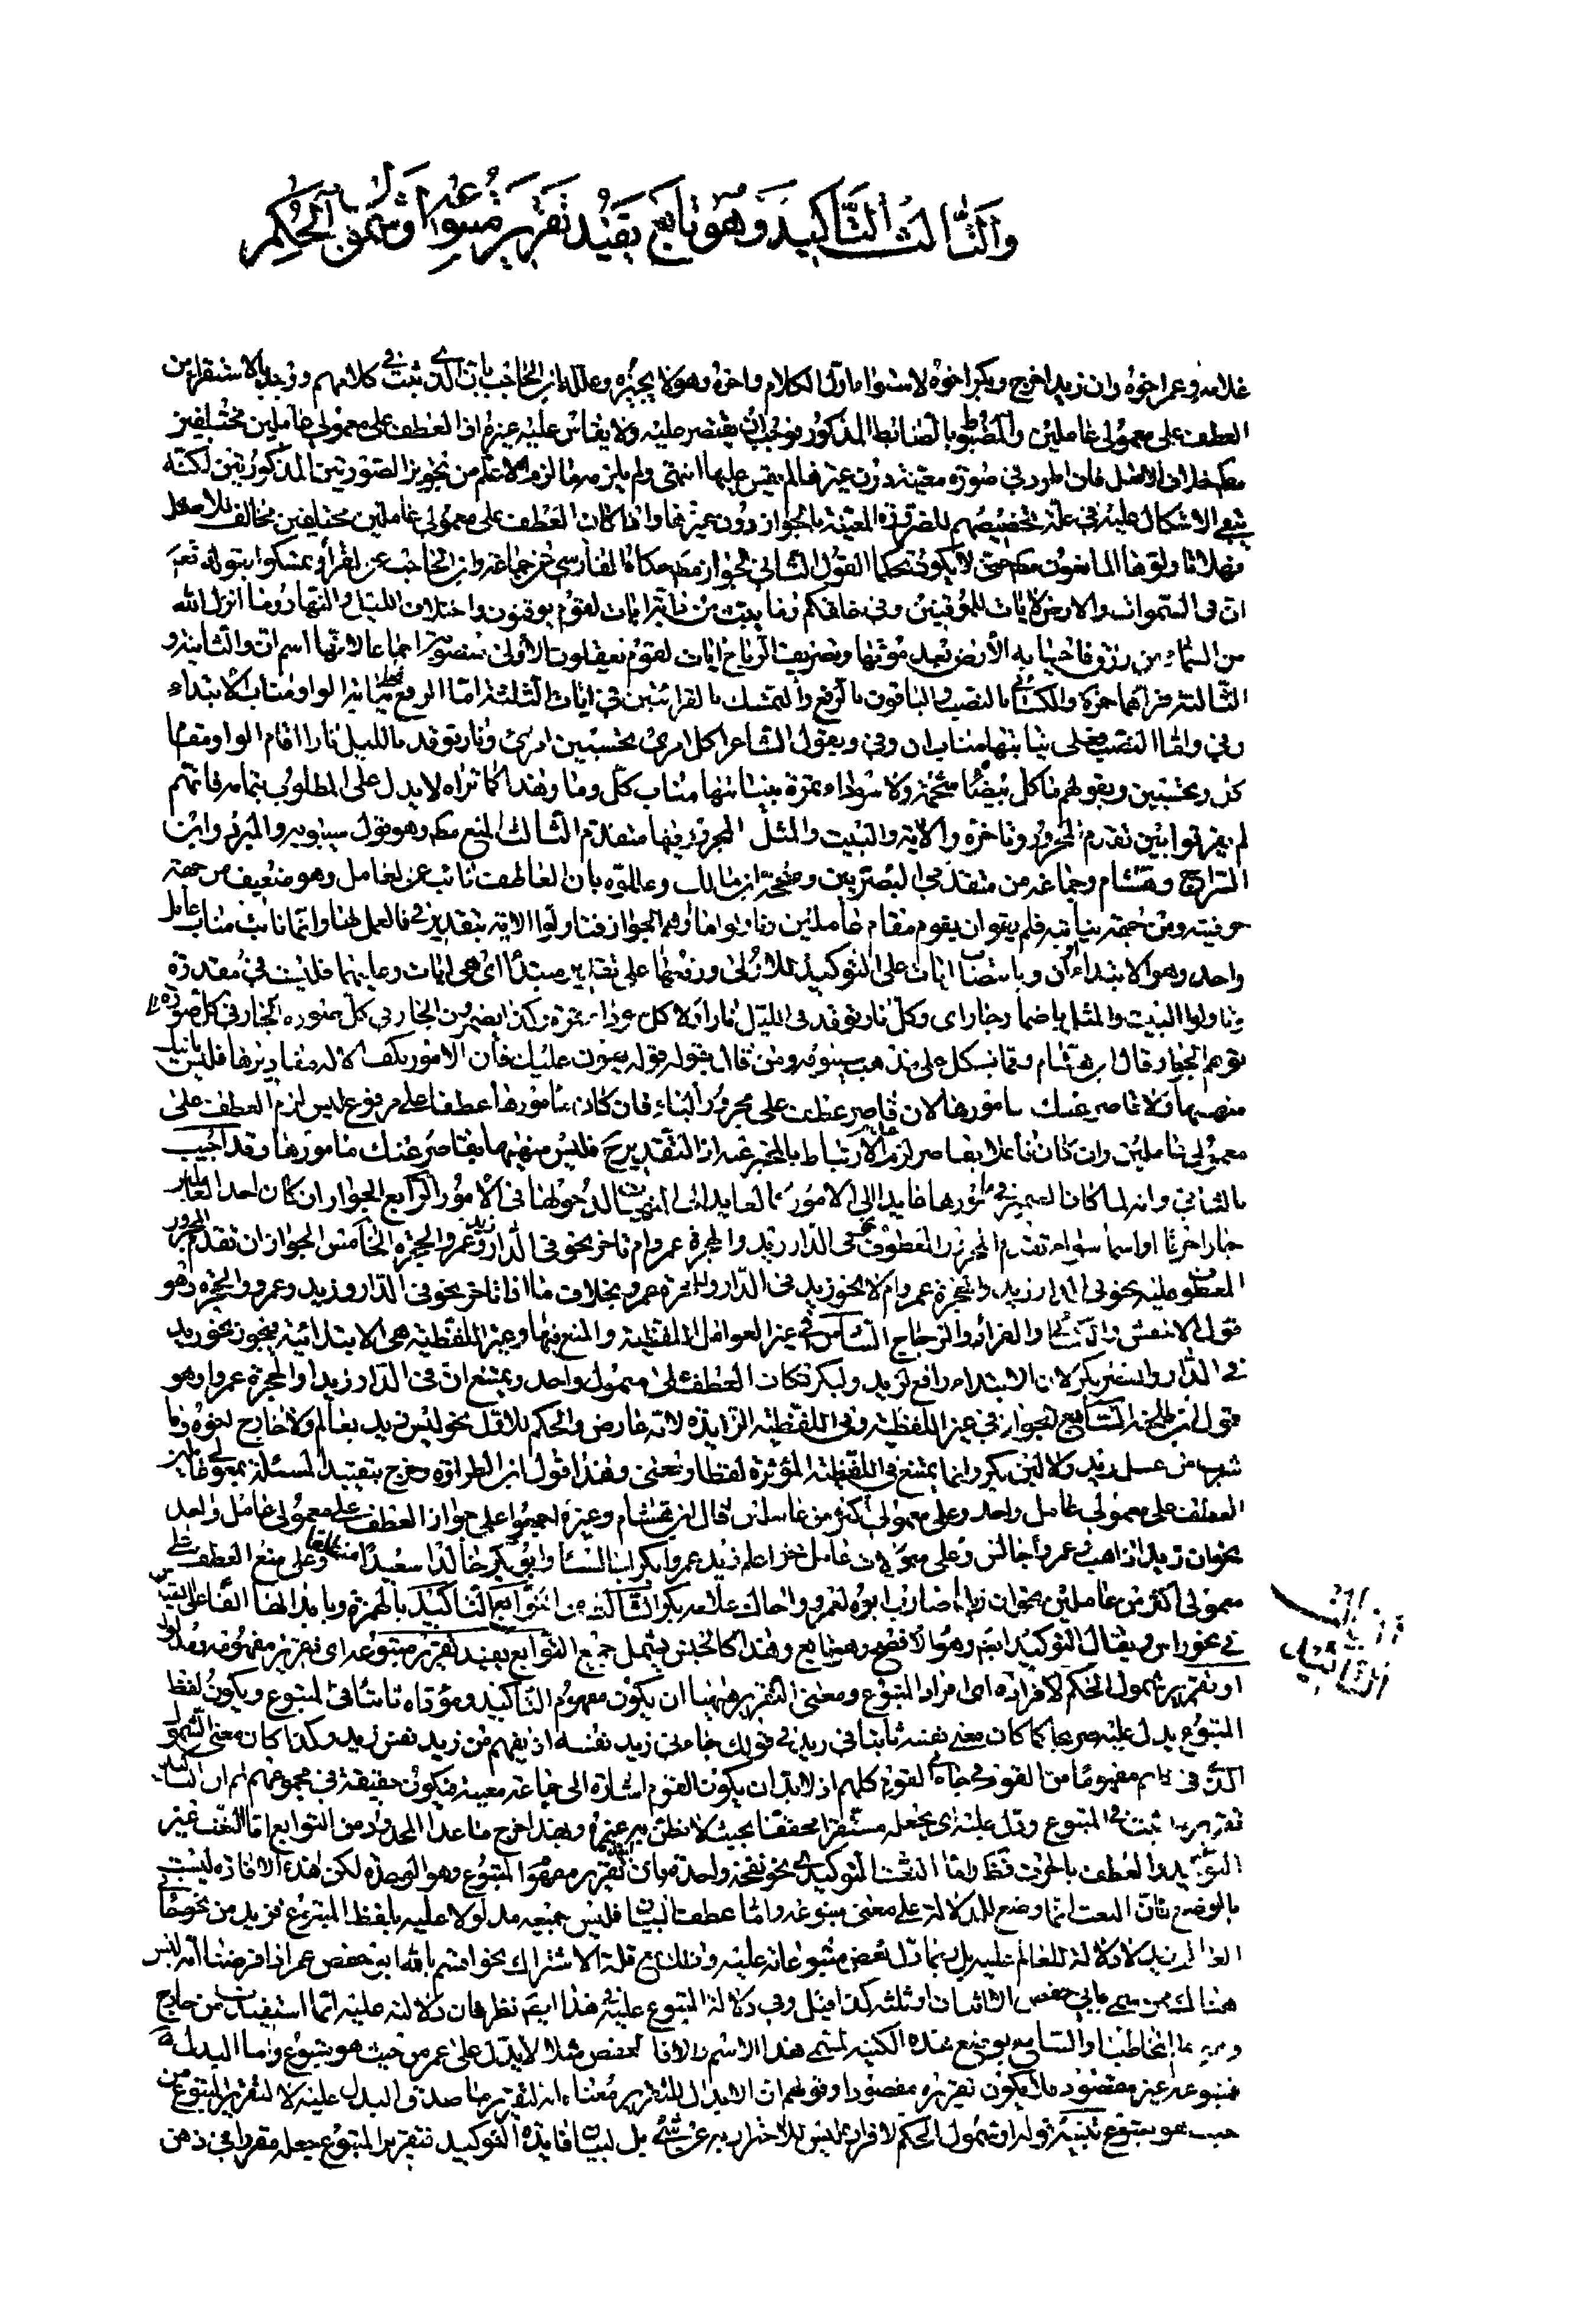 والثالث التأكيد وهو تابع يفيد تقرير متبوعه او شمول الحكم
غلامه وعمرا خوه وان زيدا خرج وبكر اخوه لاستواء اول الكلام واخره وهو لا يجيزه وعلله ابن الحاجب بان الذي ثبت في كلامهم ووجد بالاستقراء من
العطف على معمولي عاملين والمضبوط بالضابط المذكور فوجب ان يقتصر عليه ولا يقاس عليه غيره اذ العطف على معمولي عاملين مختلفين
خلاف الاصل فان اطرد في صورة معينة دون غيره فلم يقس عليها انتهى ولم يلزمه ما لزم الاعلم من تجويز الصورتين المذكورتين لكنه
يبقى الاشكال عليه في علة تخصيصهم للصورة المعينة بالجواز دون غيرها واذا كان العطف على معمولي عاملين مختلفين مخالف للاصل
القول الثاني الجواز حكاه الفارسي عن جماعة وابن الحاجب عن الفراء وتمسكوا بقوله تع
ان في السموات والارض لايات للمؤمنين وفي خلقكم وما يبث من دابة ايات لقوم يوقنون واختلاف الليل والنهار وما انزل الله
من السماء من رزق فاحيا به الأرض بعد موتها وتصريف الرياح ايات لقوم يعقلون الأولى منصوبة اجماعا لانها اسم ان والثانية و
الثالثة قرأهما حمزة والكسائي بالنصب والباقون بالرفع والتمسك بالقرائتين في ايات الثلثة اما الرفع فعلى نيابة الواو مناب الابتداء
وفي واما النصب فعلى نيابتها مناب ان وفي وبقول الشاعر اكل امرئ تحسبين امرئ ونار توقد بالليل نارا اقام الواو مقام
كل وتحسبين وبقولهم ما كل بيضاء شحمة ولا سوداء تمرة بنيابتها مناب كل وما وهذا كما تراه لا يدل على المطلوب بتمامه فانهم
لم يفرقوا بين تقدم المجرور وتاخره والاية والبيت والمثل المجرور فيها متقدم الثالث المنع وهو قول سيبويه والمبرد وابن
السراج وهشام وجماعة من متقدمي البصريين وصححه ابن مالك وعللوه بان العاطف نائب عن العامل وهو ضعيف من جهة
حرفيته ومن جهة نيابته فلم يقو ان يقوم مقام عاملين وتاولوا ما اوهم الجواز فتاولوا الاية بتقدير في فالعمل لها وانما نابت مناب عامل
واحد وهو الابتداء او ان وبانتصاب ايات على التوكيد للاولى ورفعها على تقدير مبتدأ اي هي ايات وعليهما فليست في مقدرة
وتاولوا البيت والمثل باضمار جار اي وكل نار توقد في الليل نارا ولا كل سوداء تمرة وكذا يضمرون الجار في كل صورة
توهم الجواز وقال ابن هشام ومما يشكل على مذهب سيبويه ومن قال بقوله قوله هون عليك فان الامور بكف الاله مقاديرها فليس بآتيك
منهيها ولا قاصر عنك مامورها لان قاصر عطف على مجرور الباء فان كان مامورها عطفا على مرفوع ليس لزم العطف على
معمولي عاملين وان كان فاعلا بقاصر لزم عدم الارتباط بالمخبر عنه اذ التقدير ح فليس منهيها بقاصر عنك مامورها وقد اجيب
بالثاني وانه لما كان الضمير في مامورها عايدا الى الامور كما لعايد الى المنهيات لدخولها في الأمور الرابع الجواز ان كان احد العاملين
جارا حرفا او اسما سواء تقدم المجرور المعطوف نحو في الدار زيد والحجرة عمرو ام تاخر نحو في الدار زيد وعمرو الحجرة الخامس الجواز ان تقدم المجرور
المعطوف عليه نحو في الدار زيد والحجرة عمرو ام لا نحو زيد في الدار والحجرة عمرو بخلاف ما اذا تاخر نحو في الدار زيد وعمرو الحجرة وهو
قول الاخفش والكسائي والفراء والزجاج السادس في غير العوامل اللفظية والمنع فيها وغير اللفظية هي الابتدائية فيجوز نحو زيد
في الدار والقصر بكر لان الابتداء رافع لزيد ولبكر فكان العطف على معمول واحد ويمتنع ان في الدار زيدا والحجرة عمروا وهو
قول ابن طلحة السابع الجواز في غير اللفظية وفي اللفظية الزايدة لانه عارض والحكم للاول نحو ليس زيد بعالم ولا خارج اخوه وما
شرب من عسل زيد ولا لبن بكر وانما يمتنع في اللفظية المؤثرة لفظا ومعنى وهذا قول ابن الطراوة وخرج بتقييد المسئلة بمعمولي عاملين
العطف على معمولي عامل واحد وعلى معمولي اكثر من عاملين قال ابن هشام وغيره اجمعوا على جواز العطف على معمولي عامل واحد
نحو ان زيدا ذاهب وعمروا جالس وعلى معمولات عامل نحو اعلم زيد عمروا بكرا جالسا وابو بكر خالدا سعيدا منطلقا وعلى منع العطف على
معمولي اكثر من عاملين نحو ان زيدا ضارب ابوه لعمرو واخاك غلامه بكر والثالث من التوابع التأكيد بالهمزة وبابدالها الفا على القياس
في نحو راس ويقال التوكيد ايضا وهو الافصح وهو تابع وهذا كالجنس يشمل جميع التوابع يفيد تقرير متبوعه اي تقرير مفهومه ومدلوله
او تقرير شمول الحكم لافراده اي افراد المتبوع ومعنى التقرير هيهنا ان يكون مفهوم التاكيد ومؤداه ثابتا في المتبوع ويكون لفظ
المتبوع يدل عليه صريحا كما كان معنى نفسه ثابتا في زيد في قولك جاءني زيد نفسه اذ يفهم من زيد نفس زيد وكذا كان معنى الشمول
الذي في كلهم مفهوما من القوم في جاءني القوم كلهم اذ لابد ان يكون القوم اشارة الى جماعة معينة فيكون حقيقة في مجموعهم ثم ان التاكيد
تقرير ما ثبت في المتبوع ودل عليه اي يجعله مستقرا محققا بحيث لا يظن به غيره وبهذا خرج ما عدا المحدود من التوابع اما النعت غير
التوكيدي والعطف بالحرف فظ واما النعت التوكيدي نحو نفخة واحدة فهو وان افاد تقرير مفهوم المتبوع وهو الوحدة لكن هذه الافادة ليست
بالوضع فان النعت انما وضع للدلالة على معنى في متبوعه واما عطف البيان فليس جميعه مدلولا عليه بلفظ المتبوع فزيد من نحو جاءني
العالم زيد لا دلالة للعالم عليه بل ربما دل بعض متبوعاته عليه وذلك مع قلة الاشتراك نحو اقسم بالله ابو حفص عمر اذا فرضنا انه ليس
هناك من سمي بابي حفص الا اثنان او ثلثة كذا قيل وفي دلالة المتبوع عليه في هذا ايضا نظر فان دلالته عليه انما استفيدت من خارج
المخاطب والسامع بوضع هذه الكنية لمسمى هذا الاسم والا فابا حفص مثلا لا يدل على عمر من حيث هو متبوع واما البدل
فمتبوعه غير مقصود فلا يكون تقريره مقصودا وقولهم ان الابدال للتقرير معناه انه لتقرير ما صدق البدل عليه لا لتقرير المتبوع من
حيث هو متبوع تنبيه قوله او شمول الحكم لافراده ليس للاحتراز به عن شيء بل لبيان فايدة التوكيد فتقرير المتبوع جعله مقررا في ذهن